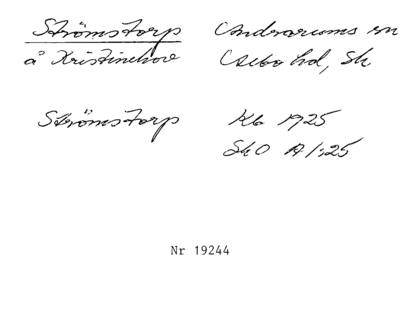 Strömstorp Andrarums sn
å Kristinehov Albo hd, Sk
Strömstorp Kb 1925
SkO A1:25
Nr 19244